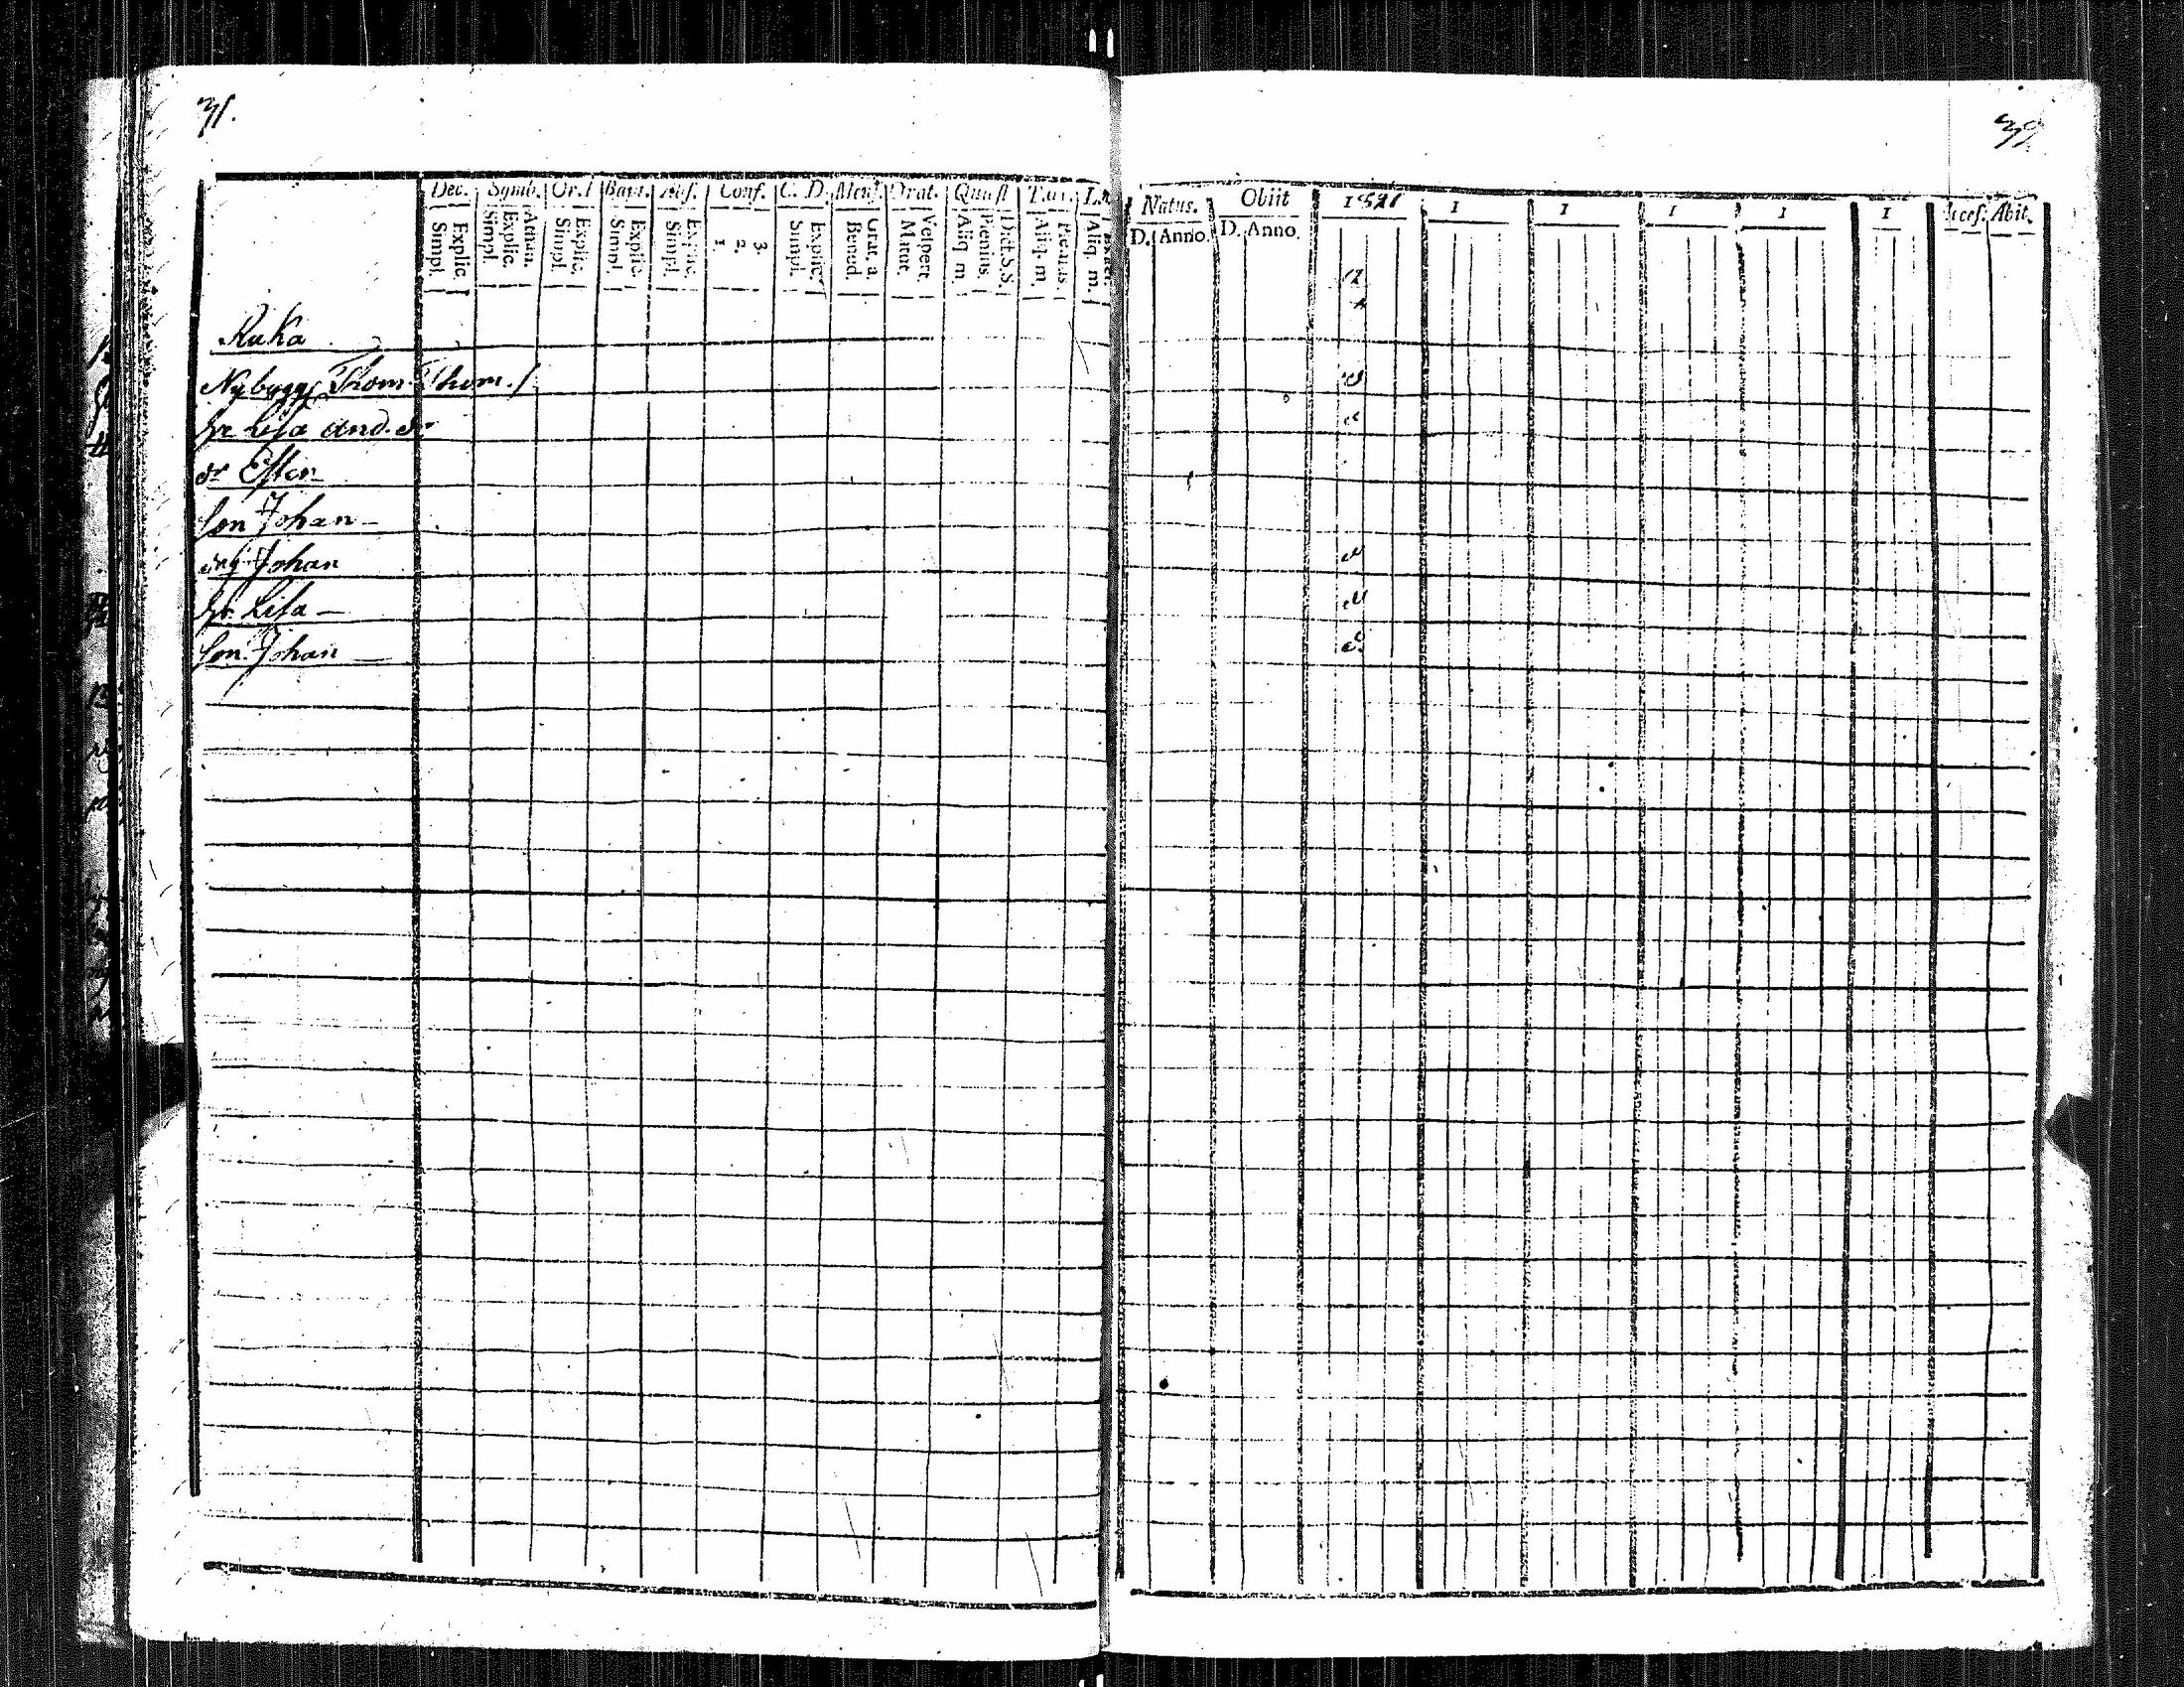 39
Dec. Symb. Or. D Bapt. Abs. Conf. C. D. Mens. Orat. Quæst Tav.
Natus. Obiit 1821 1 1 1 1 1 Acces. Abit.
Simpl. Explic. Simpl. Explic. Athan. Simpl. Explic. Simpl. Explic. Simpl. Explic. 1. 2. 3. Simpl. Explic. Bened. Grat. a. Matut. Vespert. Aliq. m. Plenius. Dict. S. S. Aliq. m. Plenius. Aliq. m.
D. Anno. D. Anno.
Ruka
Nybygg. Thom. Thom. /
hr Lisa And. dr
dr Ester
Son Johan
drg Johan
hr. Lisa
Son. Johan